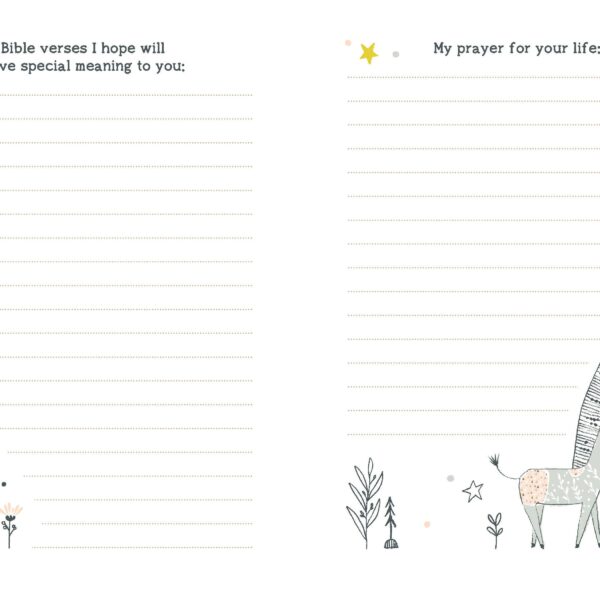 Bible verses I hope will
ve special meaning to you:
My prayer for your life: